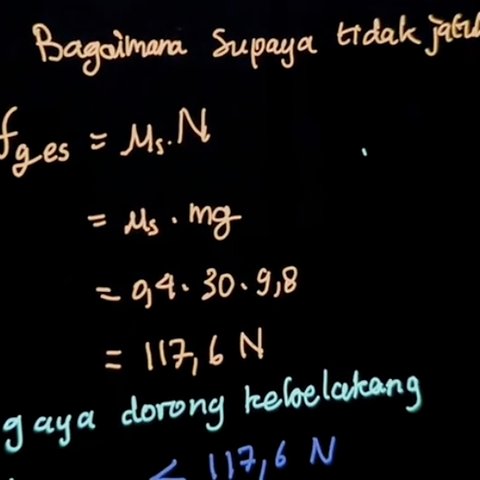 Bagaimana supaya tidak jatu
fges = μs.N
= μs . mg
= 0,4 . 30 . 9,8
= 117,6 N
gaya dorong kebelakang
< 117,6 N